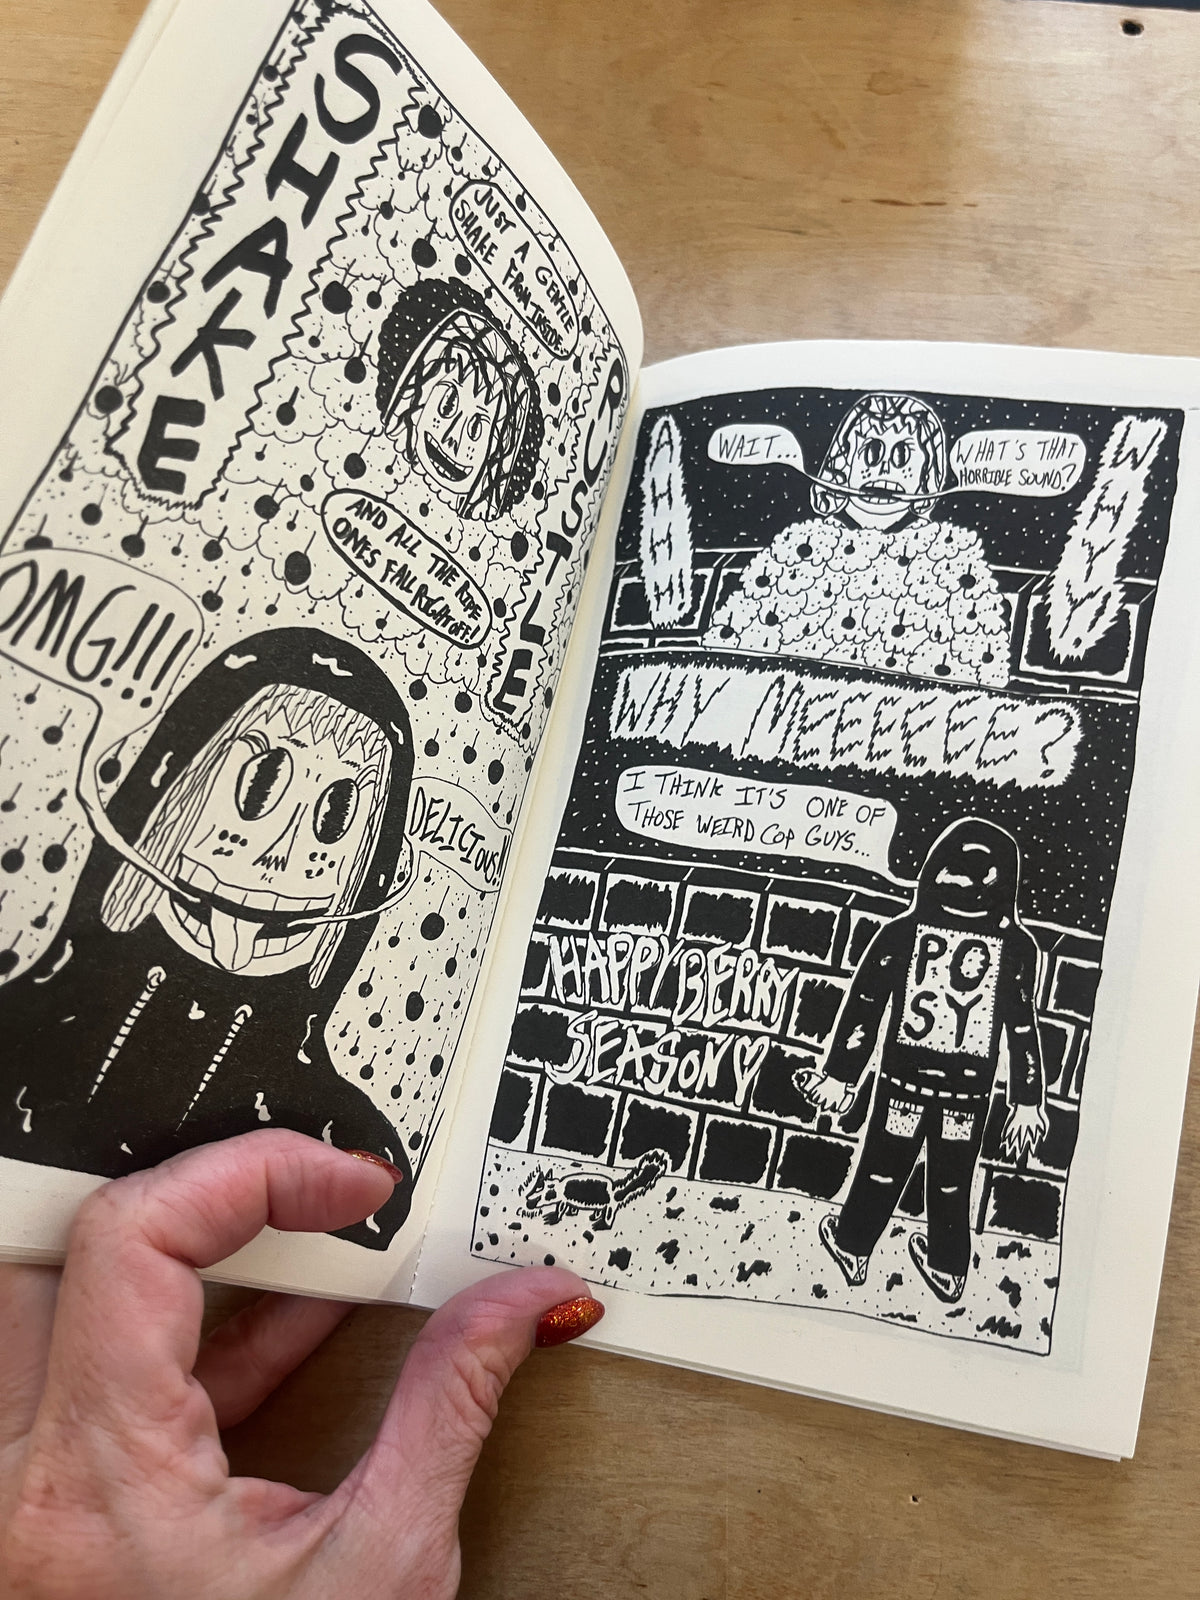 SHAKE
JUST A GENTLE
SHAKE FROM INSIDE..
RUSTLE
AND ALL THE RIPE
ONES FALL RIGHT OFF!!
OMG!!!
DELICIOUS!!
AHHHH
WAIT...
WHAT'S THAT
HORRIBLE SOUND?
WHHYYY
WHY MEEEEEEE?
I THINK IT'S ONE OF
THOSE WEIRD COP GUYS...
HAPPY BERRY
SEASON
PO
SY
CRUNCH